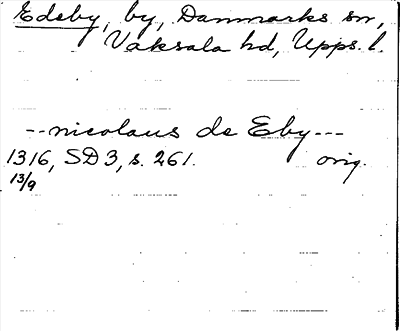 Edeby, by, Danmarks sn,
Vaksala hd, Upps. l.
--nicolaus de Eby---
1316, SD 3, s. 261. orig.
13/9